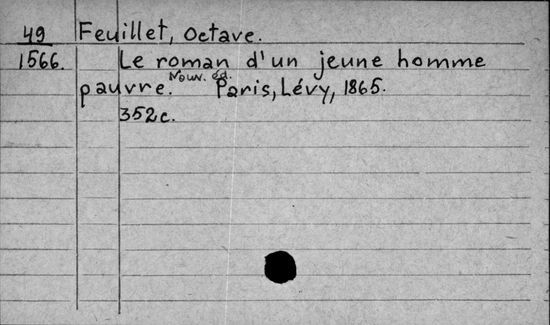 49 Feuillet, Octave.
1566. Le roman d'un jeune homme
pauvre. Nouv. éd. Paris, Lévy, 1865.
352c.